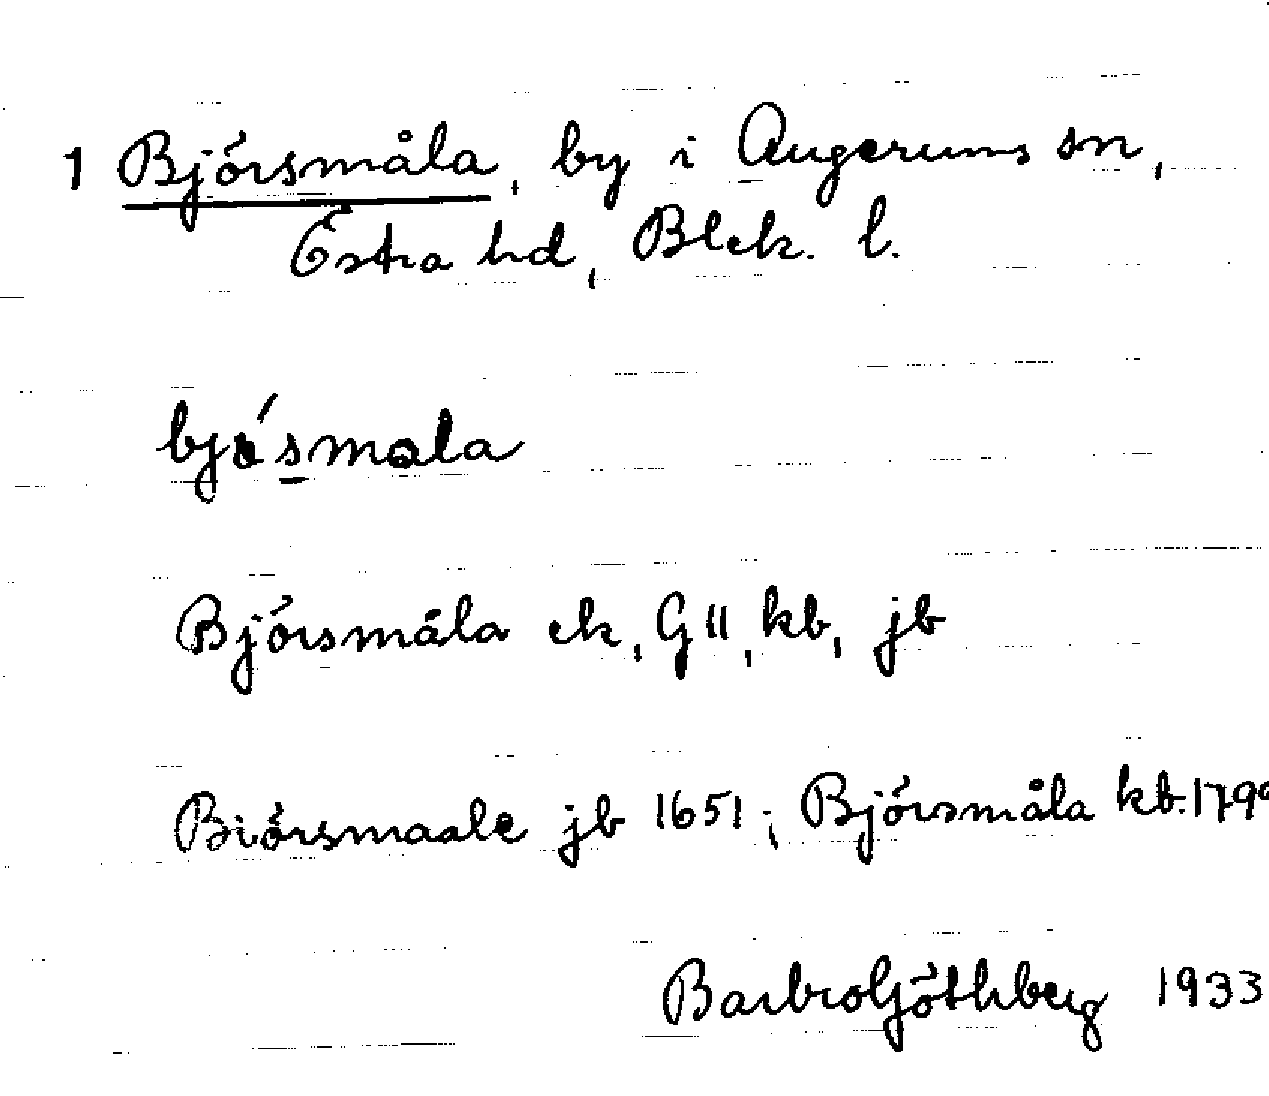 1 Björsmåla, by i Augerums sn,
Östra hd, Blek. l.
bjø´småla
Björsmåla ek, G II, kb, jb
Biörsmaale jb 1651; Björsmåla kb. 179
Barbro Göthberg 1933